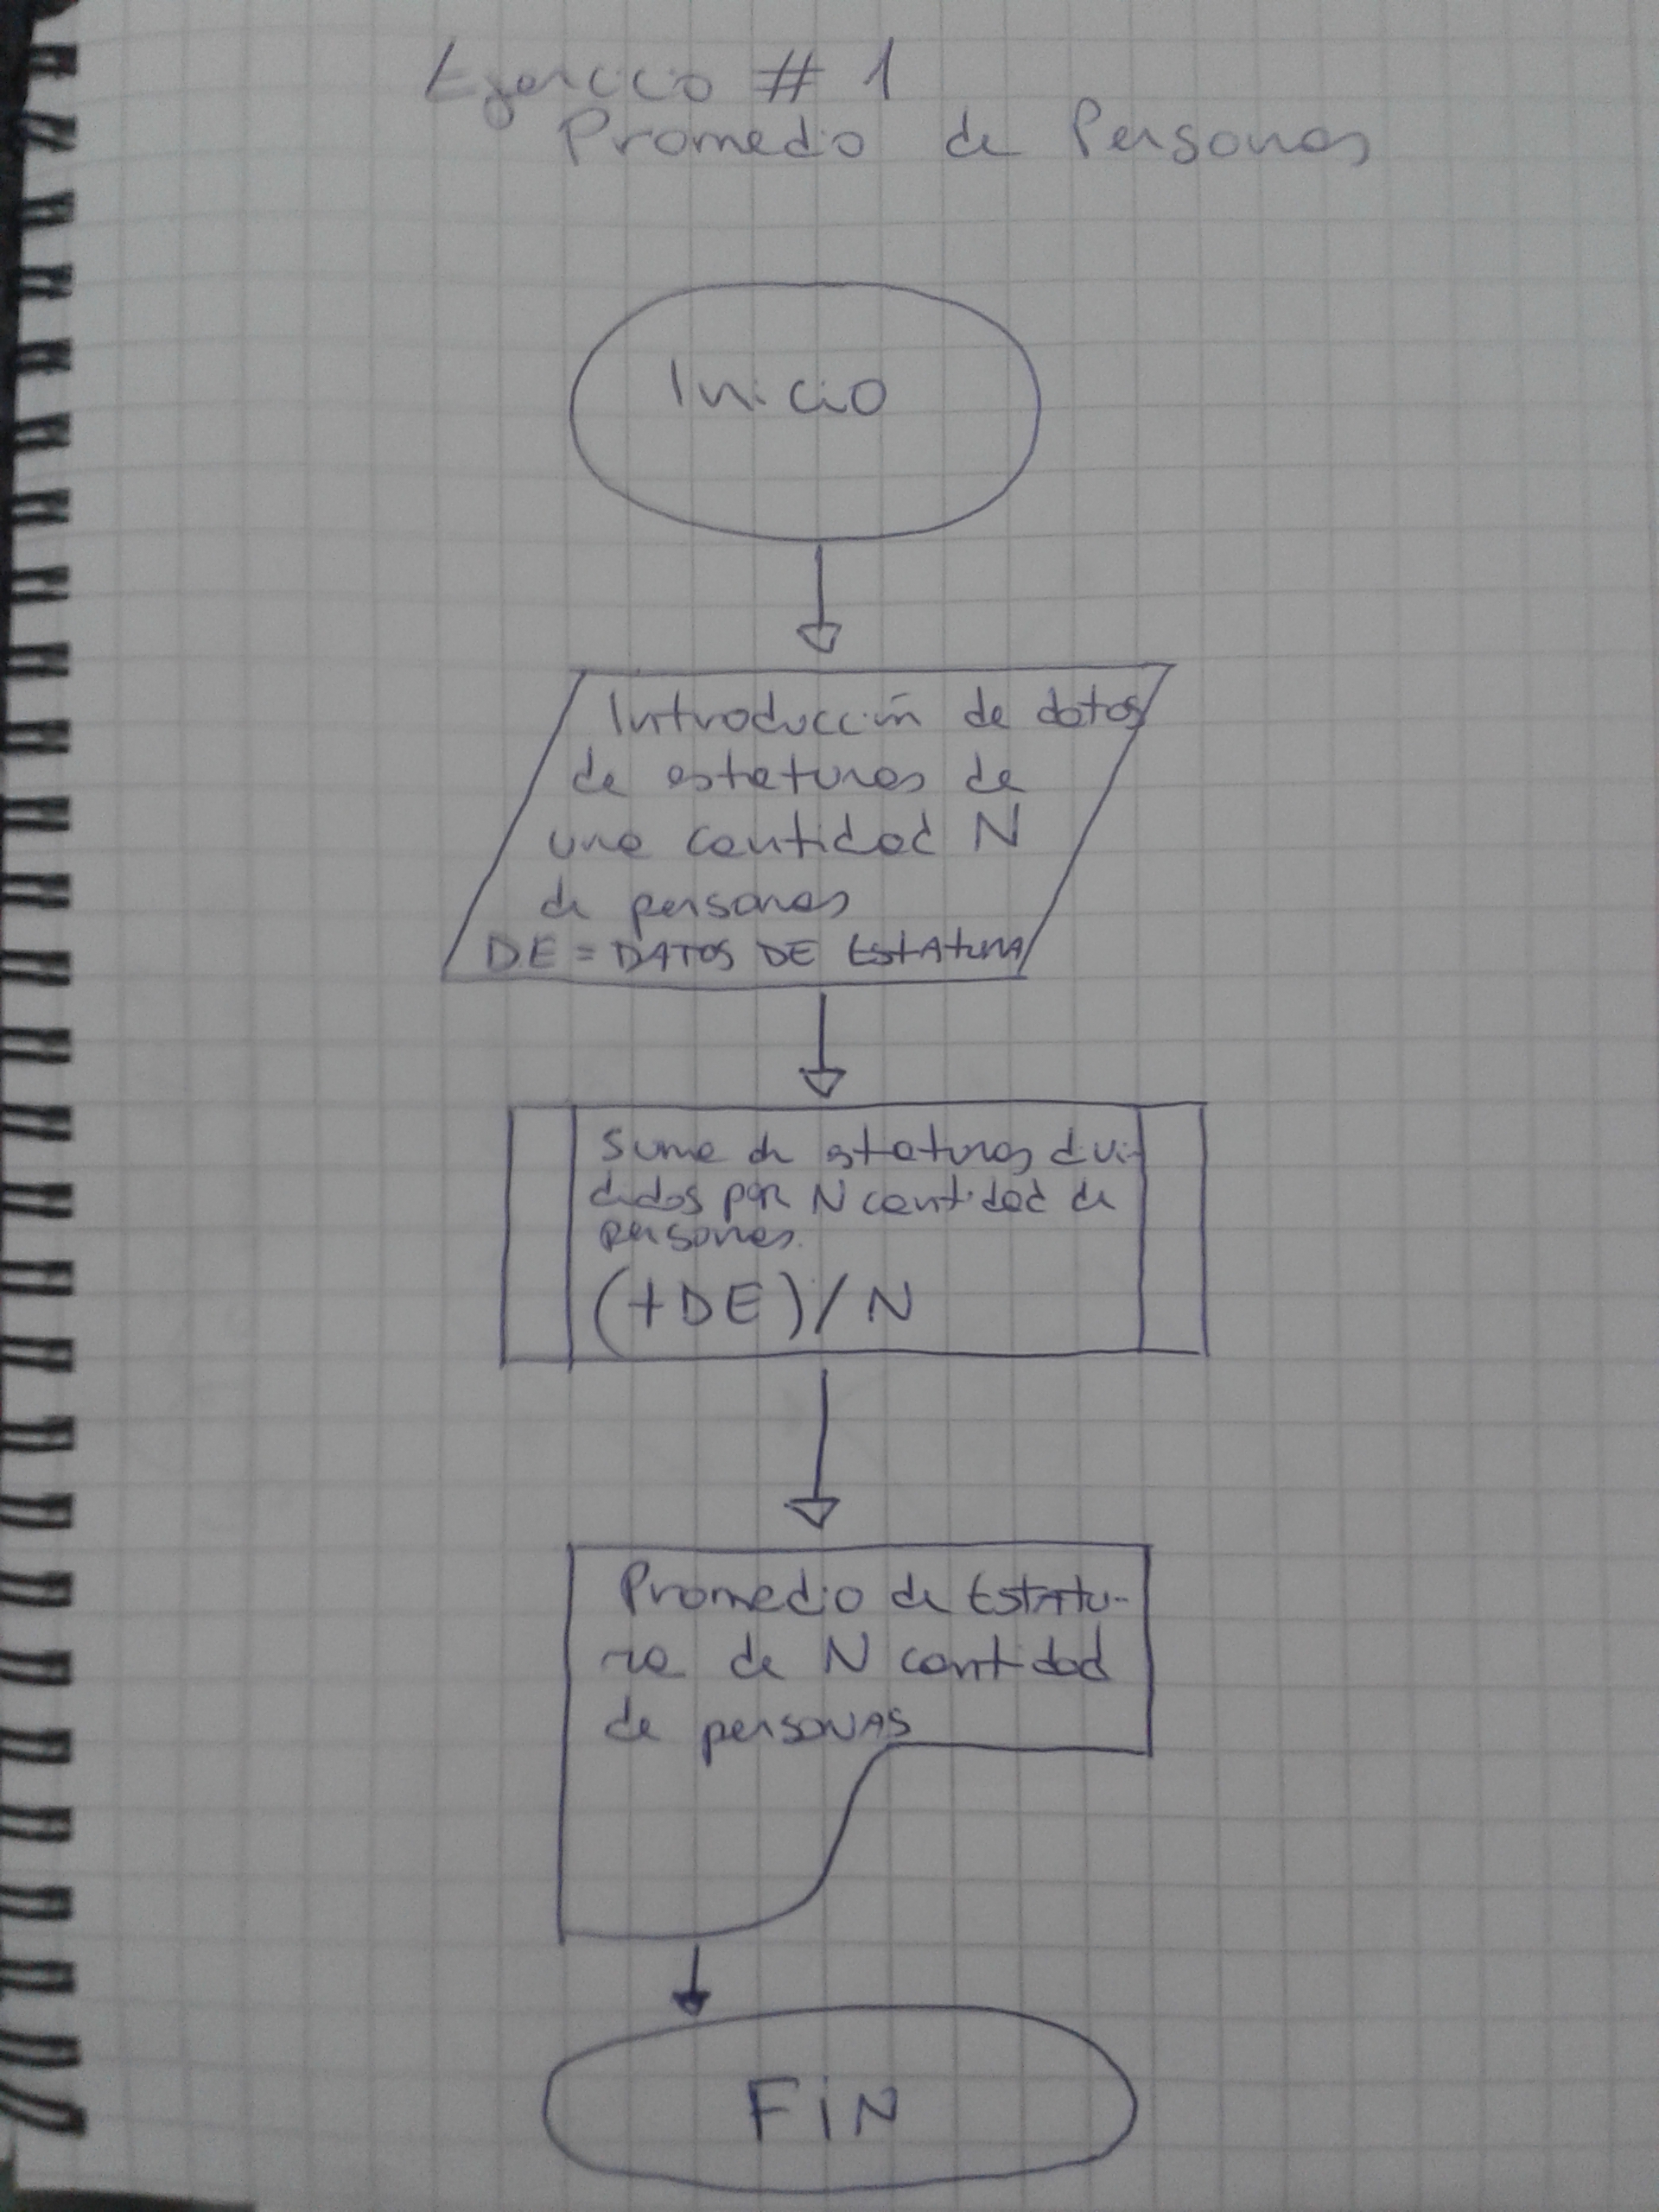 Ejercicio # 1
Promedio de Personas
Inicio
Introducción de datos
de estaturas de
una cantidad N
de personas
DE = DATOS DE ESTATURA
Suma de estaturas divi-
didos por N cantidad de
personas.
(+DE)/N
Promedio de Estatu-
ra de N cantidad
de personas
FiN